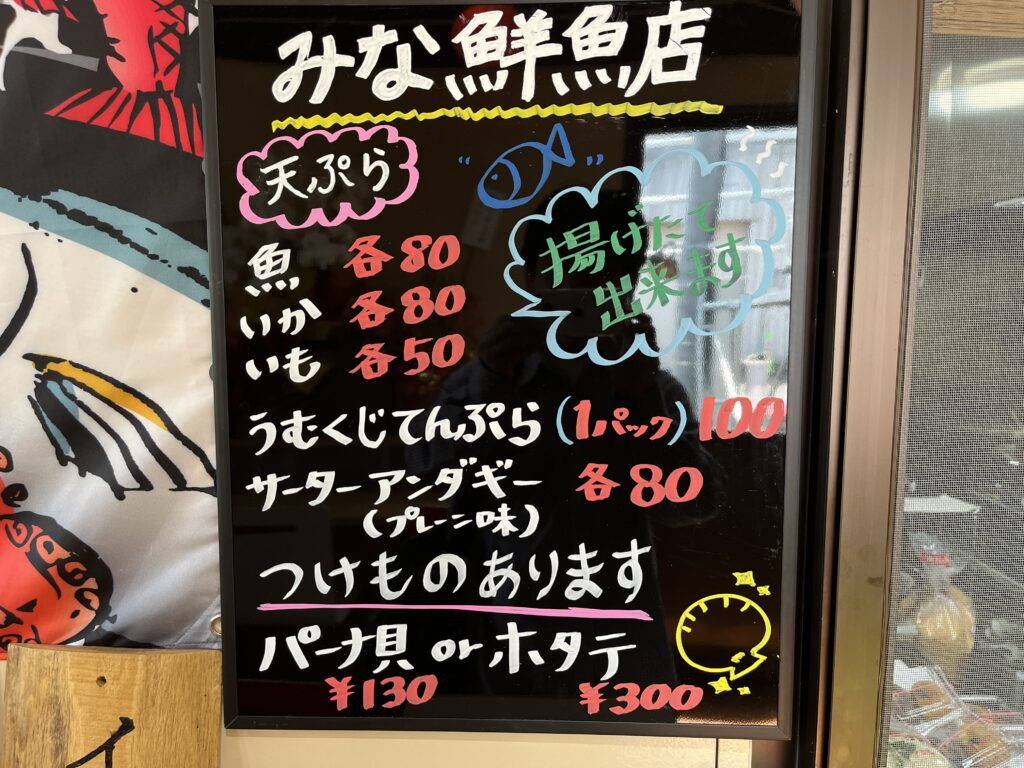 みな鮮魚店
天ぷら
揚げたて
出来ます
魚 各80
いか 各80
いも 各50
うむくじてんぷら (1パック) 100
サーターアンダギー 各80
(プレーン味)
つけものあります
パーナ貝 or ホタテ
¥130 ¥300
イ